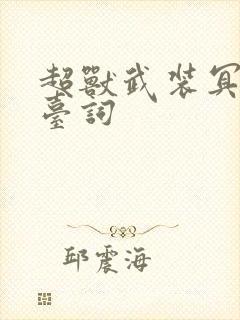 超獸武裝冥
臺詞
邱震海